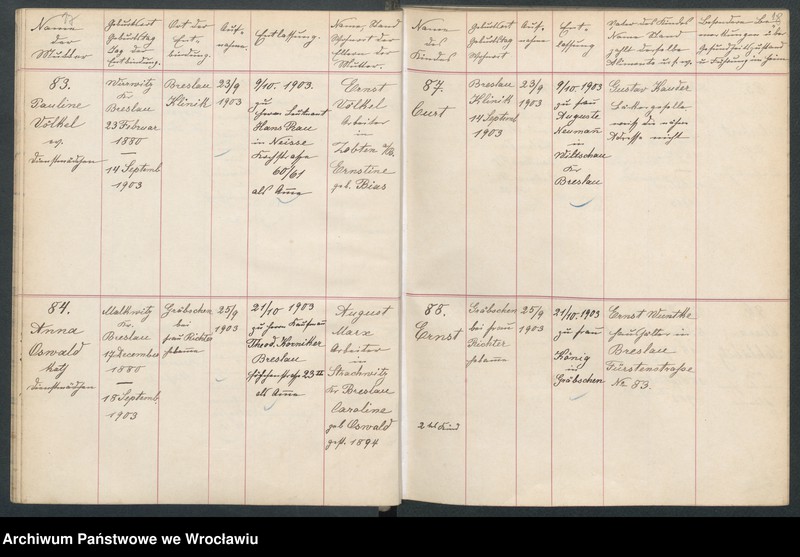 Name
der
Mutter
Geburtsort
Geburtstag
Tag der
Entbindung.
Ort der
Ent-
bindung.
Auf-
nahme.
Entlassung.
Name, Stand
Wohnort der
Eltern der
Mutter.
83.
Pauline
Völkel
ev.
Dienstmädchen
Wurwitz
Kr
Breslau
23 Februar
1880
14 Septemb.
1903
Breslau
Klinik
23/9
1903
9/10. 1903.
zu
Herrn Leutnant
Hans Rau
in Neisse
60/61
als Amme
Ernst
Völkel
Arbeiter
in
Zobten
Ernstine
geb. Bius
84.
Anna
Oswald
kath
Dienstmädchen
Malkwitz
Kr.
Breslau
17 December
1880
18 Septemb.
1903
Gräbschen
bei
Frau Richter
Hebamme
25/9
1903
21/10 1903
zu Herrn Kaufmann
Theod. Korniker
Breslau
Höfchenstraße 23 II
als Amme
August
Marx
Arbeiter
in
Strachwitz
Kr Breslau
Caroline
geb Oswald
gest. 1894
18
Name
des
Kindes
Geburtsort
Geburtstag
Wohnort
Auf-
nahme
Ent-
lassung
Vater des Kindes
Name Stand
zahlt derselbe
Alimente u.s.w.
Besondere Be-
merkungen über
Gesundheitszustand
u Führung im Heim
87.
Curt
Breslau
Klinik
14 Septemb
1903
23/9
1903
9/10. 1903
zu Frau
Auguste
Neumann
in
Wiltschau
Kr
Breslau
Gustav Kauder
weiß die nähere
Adresse nicht
88.
Ernst
2tes Kind
Gräbschen
bei Frau
Richter
Hebamme
25/9
1903
21/10. 1903
zu Frau
König
in
Gräbschen
Ernst Wuntke
Haushälter in
Breslau
Fürstenstrasse
No 83.
Archiwum Państwowe we Wrocławiu